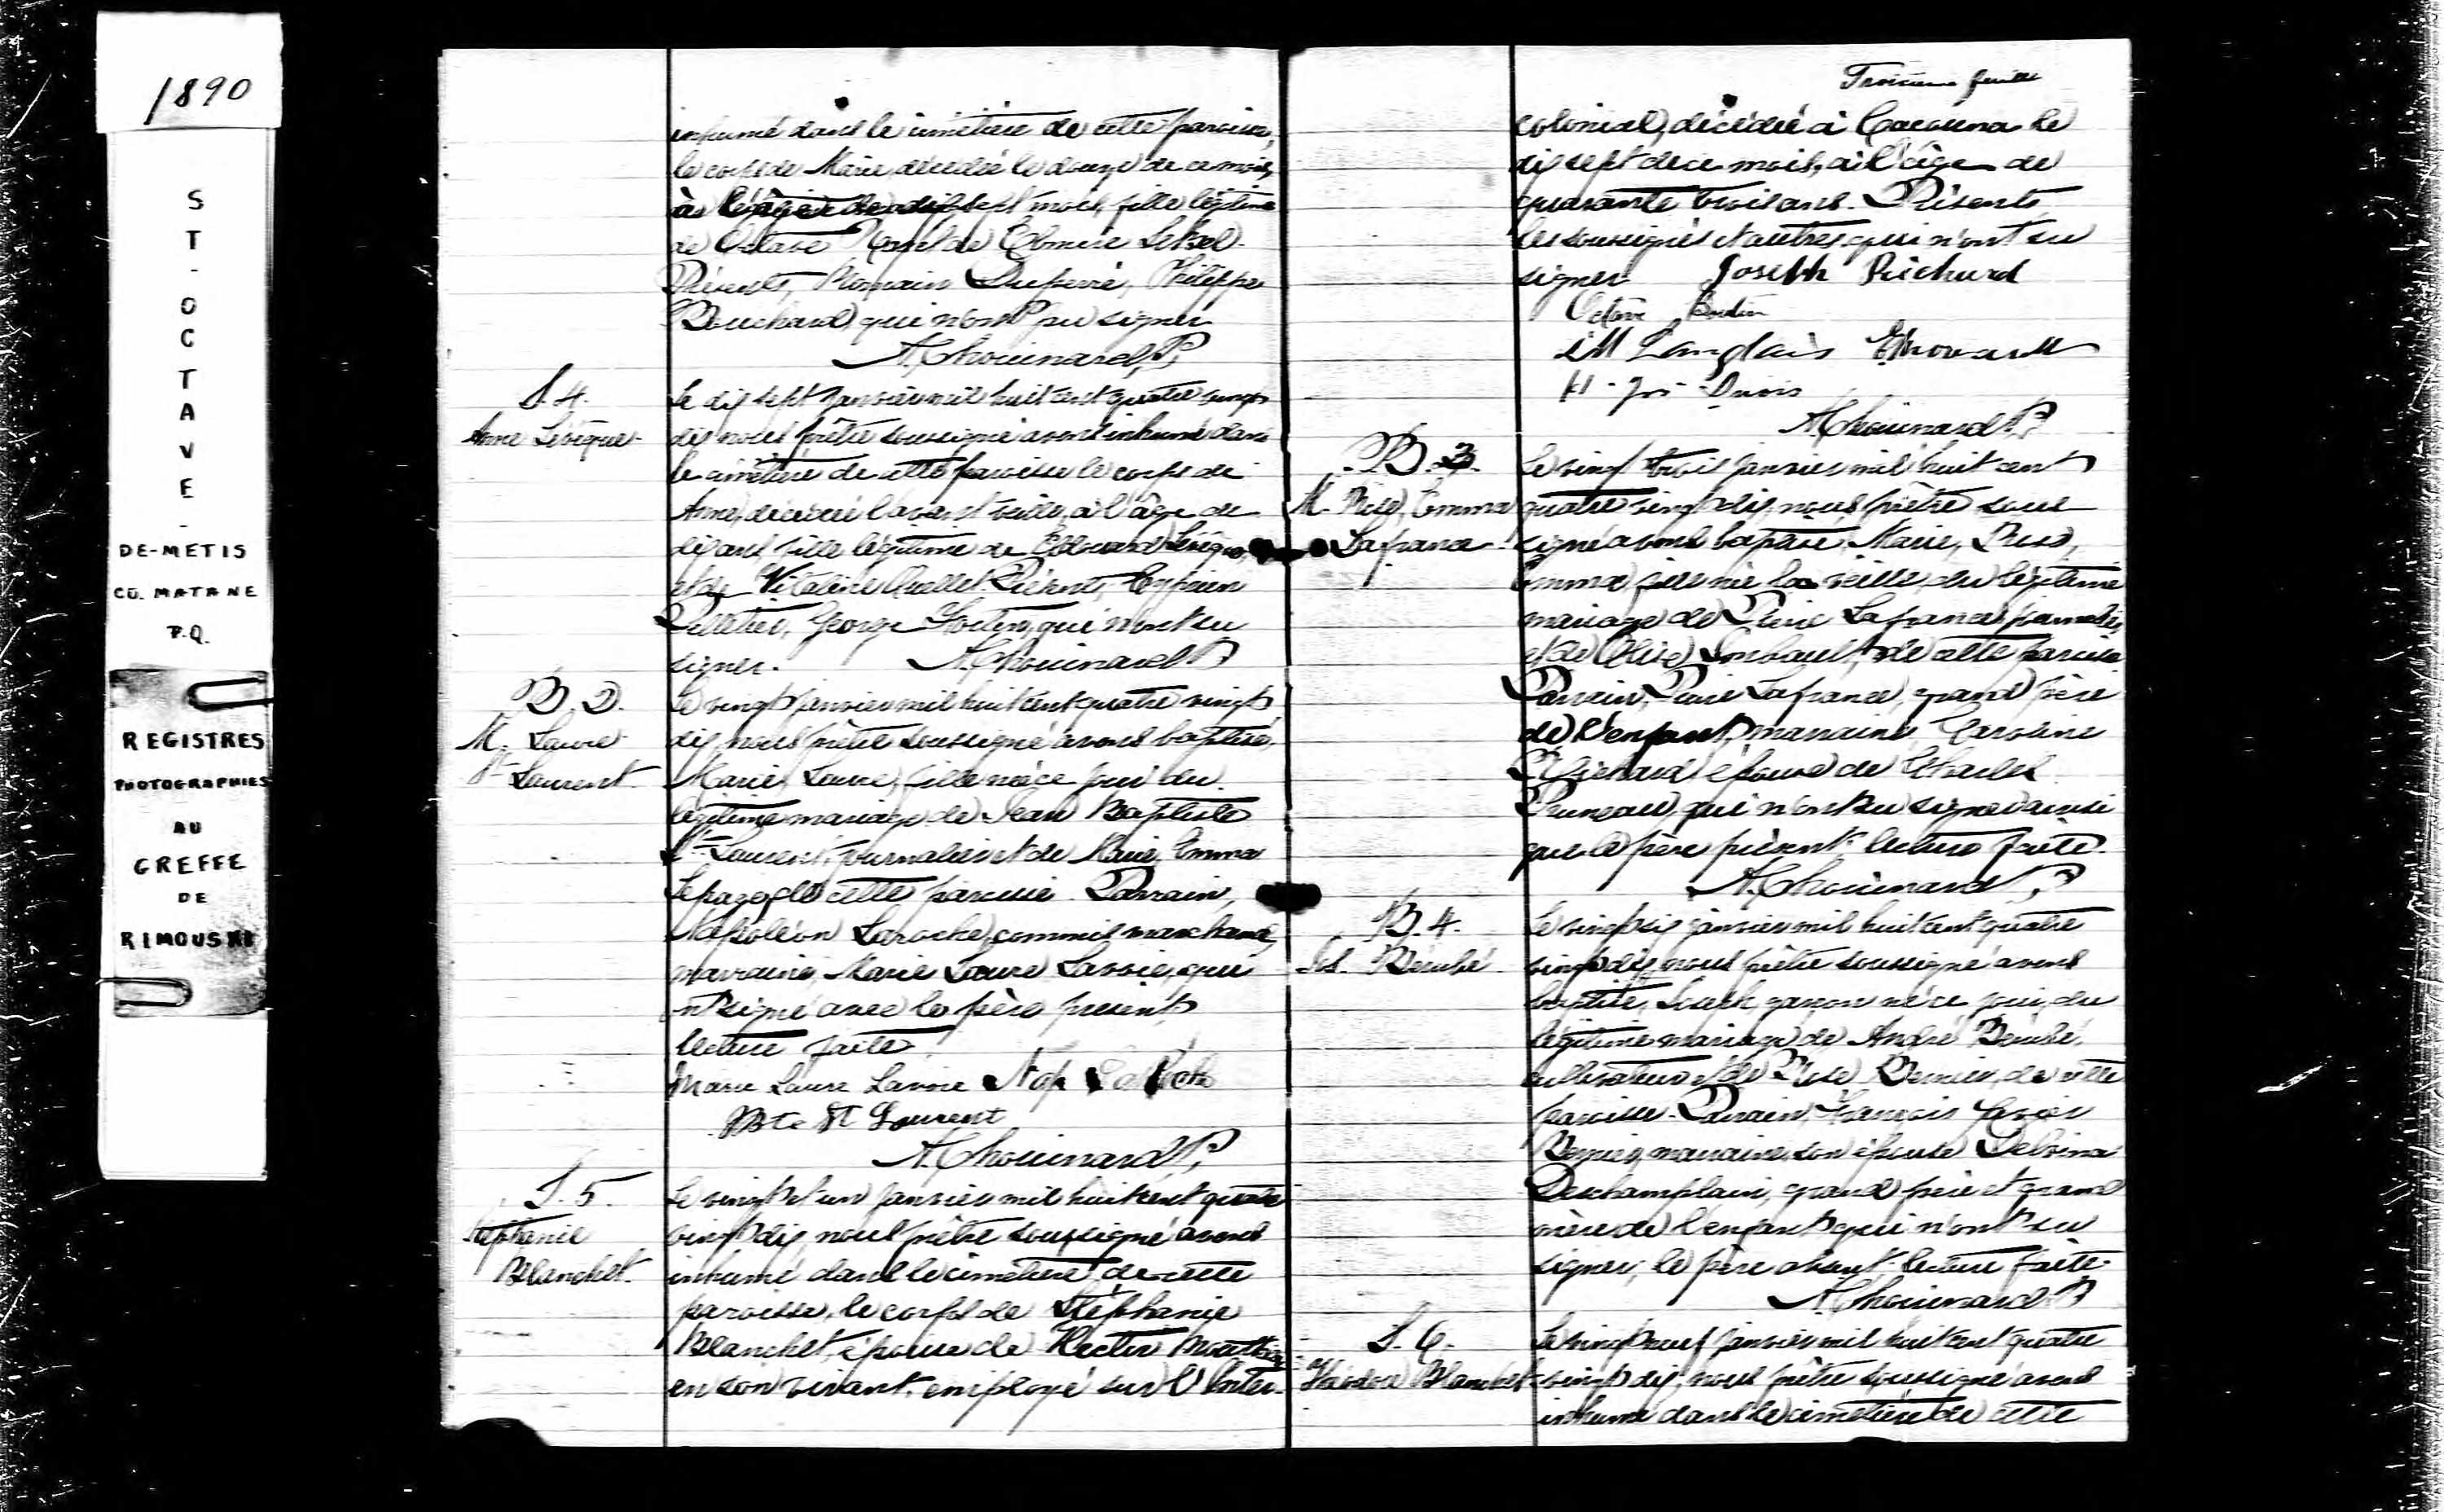 1890
ST-OCTAVE-
DE-METIS
CO. MATANE
P.Q.
REGISTRES
PHOTOGRAPHIES
AU
GREFFE
DE
RIMOUSKI
inhumé dans le cimetière de cette paroisse,
le corps de Marie, décédée le douze de ce mois,
à l'âge de sept mois, fille légitime
de Octave et de Elmire Lebel.
Présents, Romain Dupéré, Philippe
Bouchard, qui n'ont pu signer
A. Chouinard, P.
S. 4.
Anne Lévêque
Le dix sept janvier mil huit cent quatre vingt
dix nous prêtre soussigné avons inhumé dans
le cimetière de cette paroisse le corps de
Anne, décédée l'avant veille, à l'âge de
dix ans, fille légitime de Edouard Lévêque,
et de Vitaline Ouellet. Présents, Cyprien
Pelletier, George Fortin, qui n'ont su
signer. A. Chouinard P
B. 2.
M. Laure
St Laurent.
Le vingt janvier mil huit cent quatre vingt
dix, nous prêtre soussigné avons baptisé,
Marie, Laure, fille née ce jour du
légitime mariage de Jean Baptiste
St Laurent, journalier et de Marie, Emma
Lepage de cette paroisse. Parrain,
Napoléon Laroche, commis marchand,
marraine, Marie Laure Lavoie, qui
ont signé avec le père présent
lecture faite.
Marie Laure Lavoie Nap LaRoche
Bte St Laurent
A. Chouinard P.
S. 5.
Stéphanie
Blanchet.
Le vingt et un janvier mil huit cent quatre
vingt dix, nous prêtre soussigné avons
inhumé dans le cimetière de cette
paroisse, le corps de Stéphanie
Blanchet, épouse de Hector
en son vivant, employé sur l'Inter-
Troisième feuille
colonial, décédée à Cacouna le
dix sept de ce mois, à l'âge de
quarante trois ans. Présents
les soussignés et autres, qui n'ont su
signer. Joseph Richard
Octave
Langlais
A. Chouinard P.
B. 3.
M. Rose, Emma
Lafrance
Le vingt trois janvier mil huit cent
quatre vingt dix, nous prêtre sous
signé avons baptisé, Marie, Rose,
Emma, fille née la veille, du légitime
mariage de Pierre Lafrance journalier,
et de Olive Imbault, de cette paroisse
Parrain, Pierre Lafrance, grand père
de l'enfant, marraine, Caroline
épouse de Charles
Pruneau, qui n'ont su signer ainsi
que le père présent. lecture faite.
A. Chouinard P
B. 4.
Js. Bérubé
Le vingt six janvier mil huit cent quatre
vingt dix, nous prêtre soussigné avons
baptisé, Joseph, garçon né ce jour, du
légitime mariage de André Bérubé,
cultivateur et de Rose Bernier, de cette
paroisse. Parrain, François Xavier
Bernier, marraine, son épouse Delvina
Deschamplain, grand père et grand
mère de l'enfant, qui n'ont su
signer, le père absent. lecture faite.
A. Chouinard P
S. 6.
Théodore Blanchet
Le vingt neuf janvier mil huit cent quatre
vingt dix, nous prêtre soussigné avons
inhumé dans le cimetière de cette